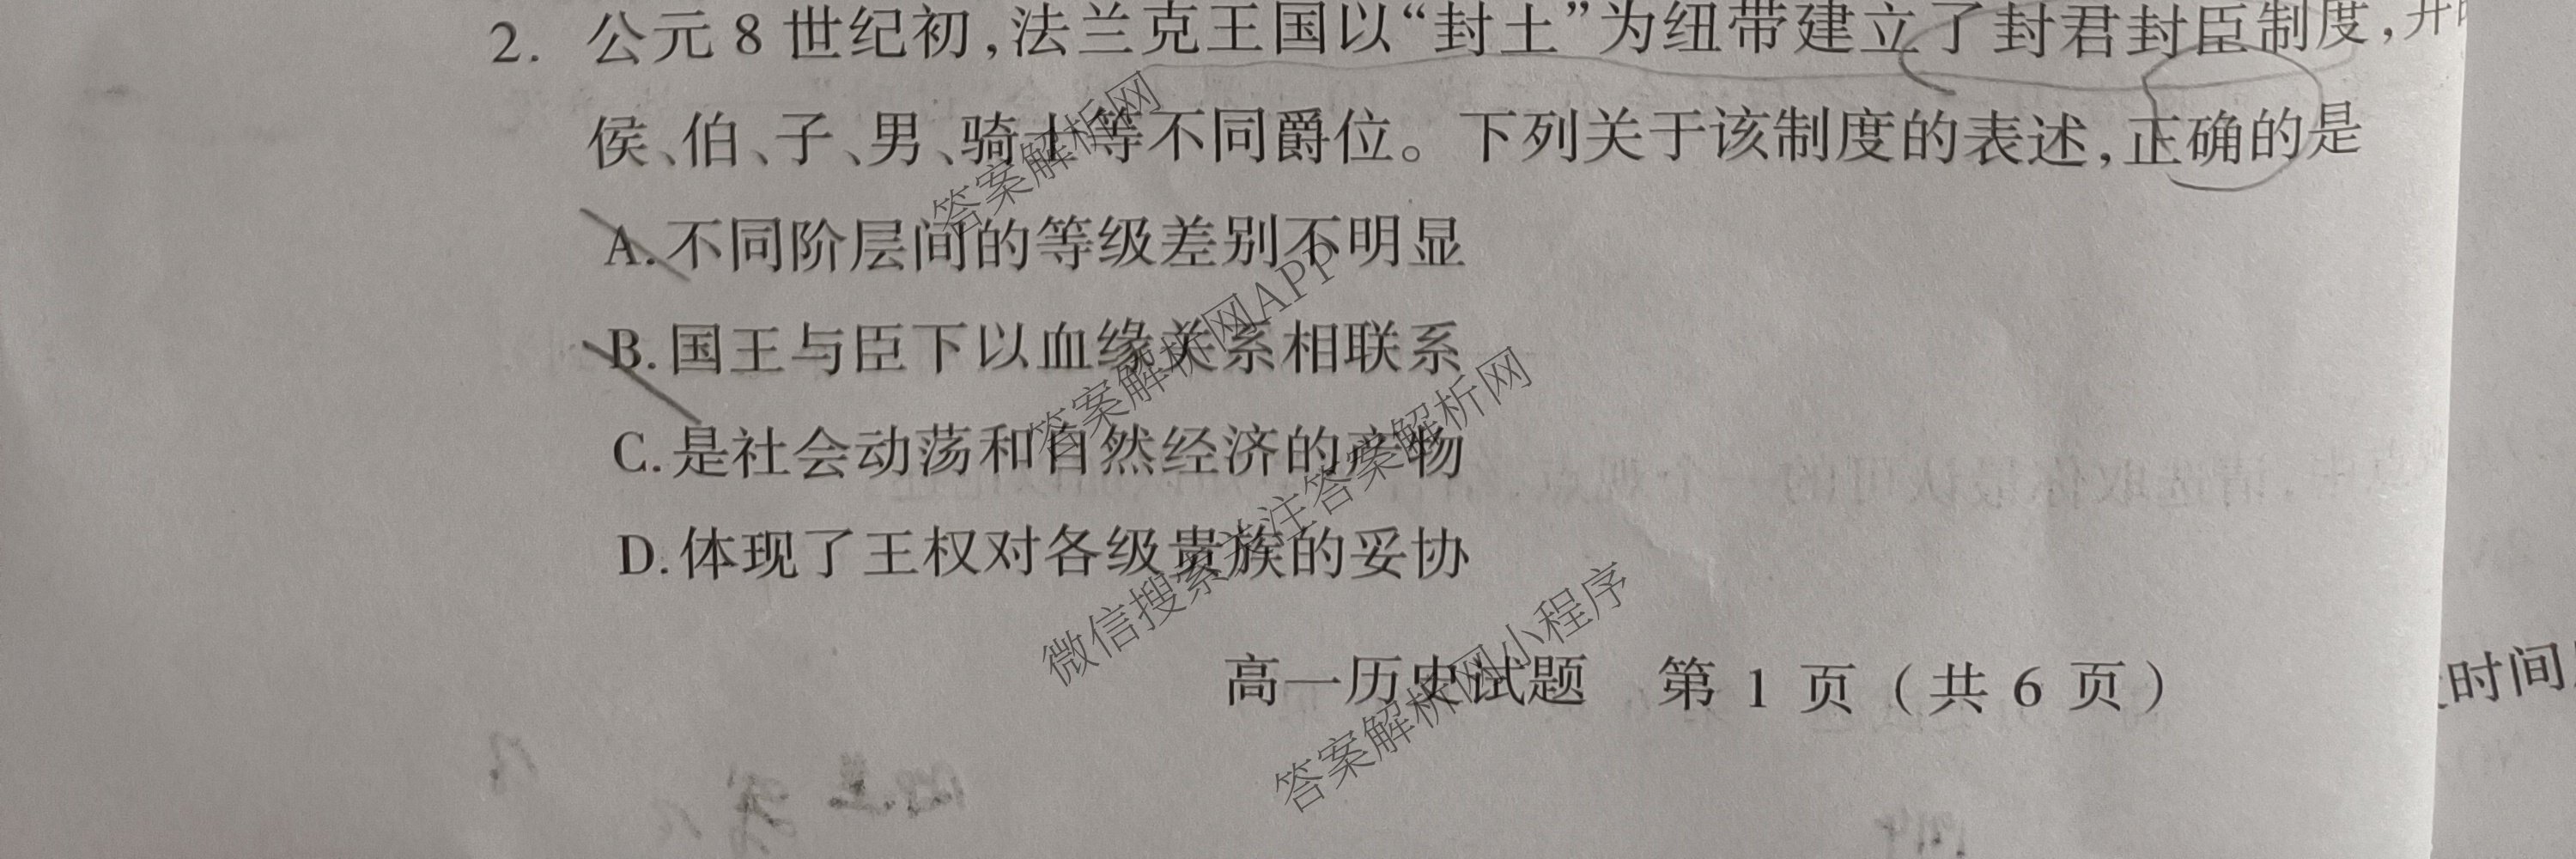 2. 公元 8 世纪初,法兰克王国以“封土”为纽带建立了封君封臣制度,并
侯、伯、子、男、骑士等不同爵位。下列关于该制度的表述,正确的是
A.不同阶层间的等级差别不明显
B.国王与臣下以血缘关系相联系
C.是社会动荡和自然经济的产物
D.体现了王权对各级贵族的妥协
高一历史试题 第 1 页 (共 6 页)
时间
答案解析网
答案解析网APP
微信搜索关注答案解析网
答案解析网小程序